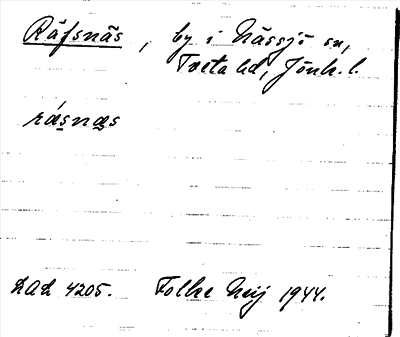 Räfsnäs, by i Nässjö sn,
Tveta hd, Jönk. l.
rásnæs
LAL 4205. Folke Neij 1944.